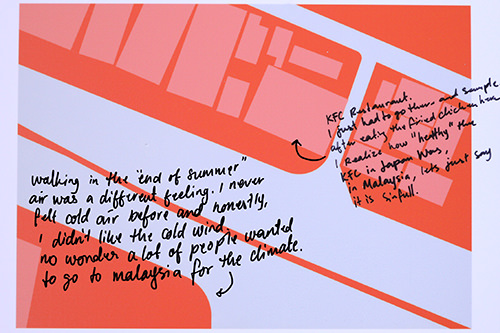 KFC Restaurant.
I just had to go there and sample
after eating the fried chicken here
I Realize how "healthy" the
KFC in Japan was,
in Malaysia, lets just say
it is sinfull.
walking in the "end of summer"
air was a different feeling. I never
felt cold air before and honestly,
I didn't like the cold wind.
no wonder a lot of people wanted
to go to malaysia for the climate.